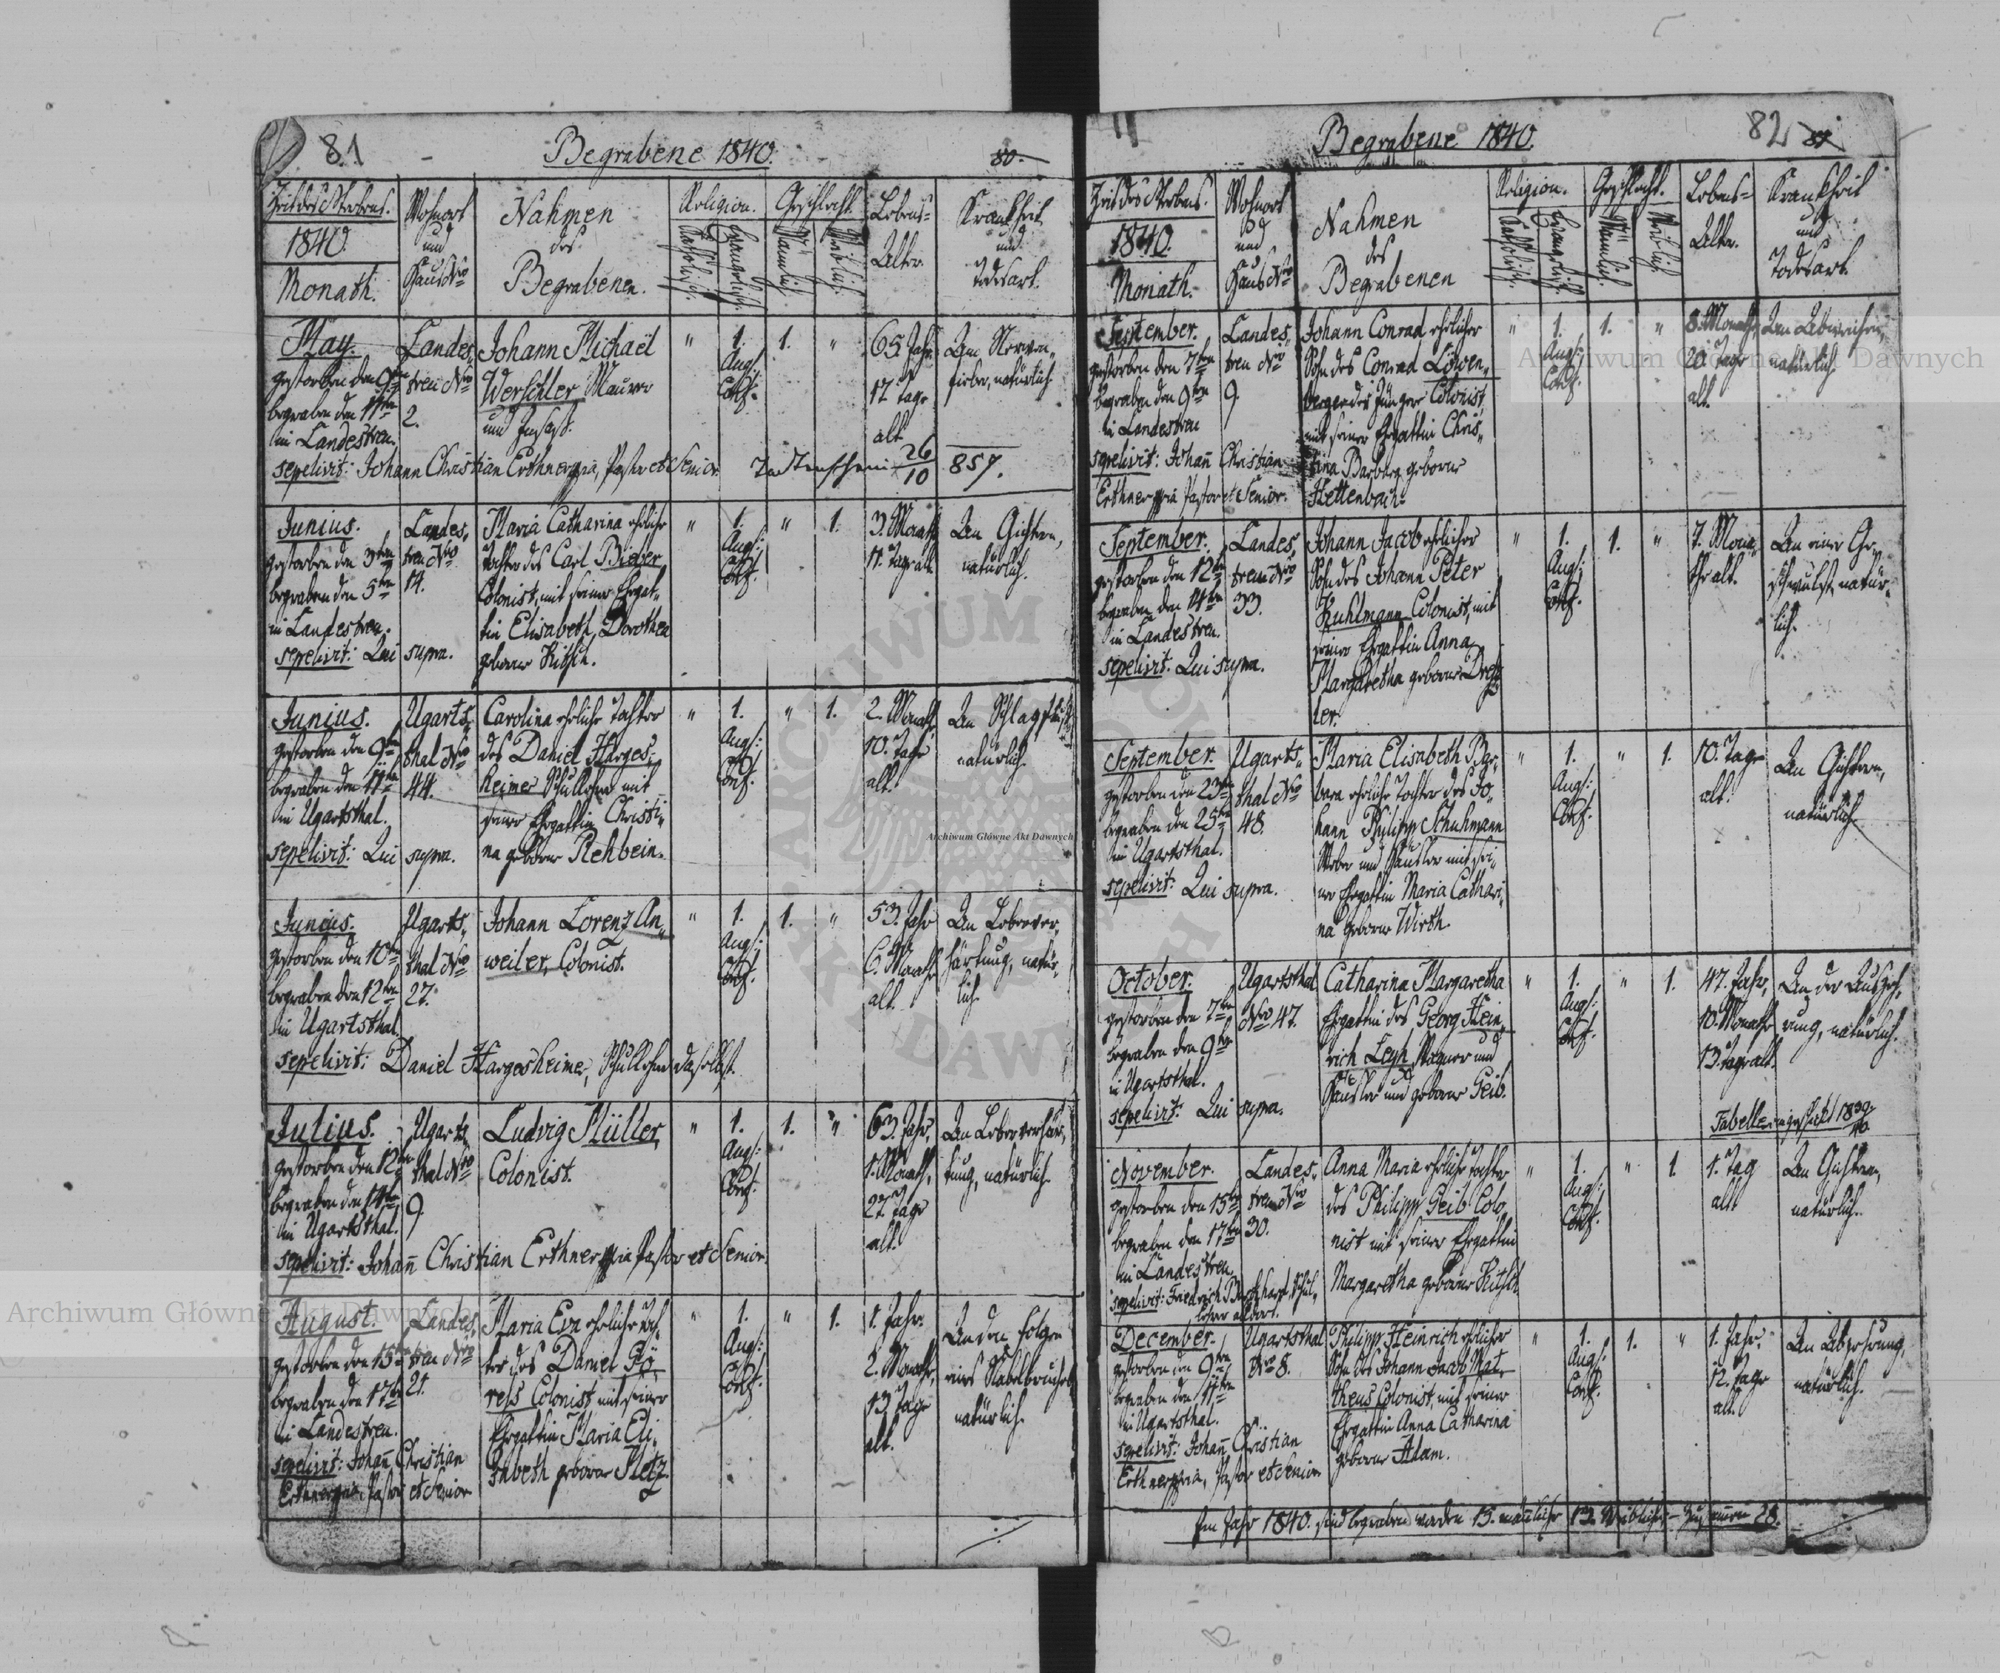 81
Begrabene 1840.
80.
Zeit des Sterbens.
1840
Monath.
Wohnort
und
Haus Nro
Nahmen
des
Begrabenen.
Religion.
Catholisch.
Evangelisch.
Geschlecht.
Männlich.
Weiblich.
Lebens-
Alter.
Krankheit
und
Todesart.
May.
gestorben den 9ten
begraben den 11ten
in Landestreu.
Landes,
treu Nro
2.
Johann Michael
Werschler Maurer
und Insaß.
"
1.
Aug:
Conf.
1.
"
65 Jahr
17 Tage
alt
Am Nerven,
fieber, natürlich
sepelivit: Johann Christian Erthner mpia, Pastor et Senior.
Todtenschein 26/10 857.
Junius.
gestorben den 3ten
begraben den 5ten
in Landestreu.
sepelivit: Qui supra.
Landes,
treu Nro
14.
Maria Catharina ehrliche
Tochter des Carl Bieber
Colonist, mit seiner Ehegat-
tin Elisabeth Dorothea
geborne Kitsch.
"
1.
Aug:
Conf.
"
1.
3. Monath
11. Tage alt
An Gichtern,
natürlich.
Junius.
gestorben den 9ten
begraben den 11ten
in Ugartsthal.
sepelivit: Qui supra.
Ugarts,
thal Nro
44.
Carolina ehrliche Tochter
des Daniel Harges-
heimer Schullehrer mit
seiner Ehegattin Christi-
na geborne Rehbein.
"
1.
Aug:
Conf.
"
1.
2. Monath
10. Tage
alt.
Am Schlagfluß
natürlich.
Junius.
gestorben den 10ten
begraben den 12ten
in Ugartsthal.
Ugarts,
thal Nro
27.
Johann Lorenz An,
weiler, Colonist.
"
1.
Aug:
Conf.
1.
"
53. Jahr
6. Monath
alt.
An Leberver,
härtung, natür,
lich.
sepelivit: Daniel Hargesheimer, Schullehrer daselbst.
Julius.
gestorben den 12ten
begraben den 14ten
in Ugartsthal.
Ugarts,
thal Nro
9.
Ludvig Müller,
Colonist.
"
1.
Aug:
Conf.
1.
"
63. Jahr,
1. Monath,
27. Tage
alt.
An Leberverhär,
tung, natürlich.
sepelivit: Johann Christian Erthner mpia Pastor et Senior.
August.
gestorben den 15ten
begraben den 17ten
in Landestreu.
sepelivit: Johann Christian
Erthner mpia, Pastor et Senior
Landes,
treu Nro
21.
Maria Eva ehrliche Toch-
ter des Daniel Gö-
ress Colonist, mit seiner
Ehegattin Maria Eli-
sabeth geborne Metz.
"
1.
Aug:
Conf.
"
1.
1. Jahr.
2. Monath,
13 Tage
alt.
An den Folgen
eines Nabelbruches
natürlich.
82
Begrabene 1840.
Zeit des Sterbens.
1840.
Monath.
Wohnort
und
Haus Nro
Nahmen
des
Begrabenen
Religion.
Catholisch.
Evangelisch.
Geschlecht.
Männlich.
Weiblich.
Lebens-
Alter.
Krankheit
und
Todesart.
September.
gestorben den 7ten
begraben den 9ten
in Landestreu
sepelivit: Johann Christian
Erthner mpia Pastor et Senior.
Landes,
treu Nro
9.
Johann Conrad ehrlicher
Sohn des Conrad Löwen,
berger des Jüngern Colonist,
mit seiner Ehegattin Chris,
tina Barbara geborne
Hettenbach.
"
1.
Aug:
Conf.
1.
"
8. Monath,
20. Tage
alt.
natürlich.
September.
gestorben den 12ten
begraben den 14ten
in Landestreu.
sepelivit: Qui supra.
Landes,
treu Nro
33.
Johann Jacob ehrlicher
Sohn des Johann Peter
Kuhlmann Colonist, mit
seiner Ehegattin Anna
Margaretha geborne Dress
ler.
"
1.
Aug:
Conf.
1.
"
7. Mona,
the alt.
An einer Ge,
schwulst, natür,
lich.
September.
gestorben den 23ten
begraben den 25ten
in Ugartsthal.
sepelivit: Qui supra.
Ugarts-
thal Nro
48.
Maria Elisabeth Bar-
bara ehrliche Tochter des Jo-
hann Philipp Schuhmann
Weber und Häusler mit sei-
ner Ehegattin Maria Cathari-
na geborne Wirth.
"
1.
Aug:
Conf.
"
1.
10. Tage
alt.
An Gichtern,
natürlich.
October.
gestorben den 7ten
begraben den 9ten
in Ugartsthal.
sepelivit: Qui supra.
Ugartsthal
Nro 47.
Catharina Margaretha
Ehegattin des Georg Hein,
rich Legh, Maurer und
Häusler und geborne Geib.
"
1.
Aug:
Conf.
"
1.
47. Jahr,
10. Monath
13. Tage alt.
An der Auszeh,
rung, natürlich.
Tabelle eingeschickt 1839/40
November.
gestorben den 15ten
begraben den 17ten
in Landestreu
sepelivit: Friedrich Burkhart, Schul,
lehrer allhort.
Landes,
treu Nro
30.
Anna Maria ehrliche Tochter
des Philipp Geib Colo,
nist mit seiner Ehegattin
Margaretha geborne Kitsch
"
1.
Aug:
Conf.
"
1.
1. Tag
alt
An Gichtern,
natürlich.
December.
gestorben den 9ten
begraben den 11ten
in Ugartsthal.
sepelivit: Johann Christian
Erthner mpia, Pastor et Senior
Ugartsthal
Nro 8.
Philipp Heinrich ehrlicher
Sohn des Johann Jacob Mat,
theus Colonist, mit seiner
Ehegattin Anna Catharina
geborne Adam.
"
1.
Aug:
Conf.
1.
"
1. Jahr,
12. Tage
alt.
An Abzehrung,
natürlich.
Im Jahr 1840. sind begraben worden 15. männliche 13. Weibliche - Zusammen 28.
Archiwum Główne Akt Dawnych
Archiwum Główne Akt Dawnych
Archiwum Główne Akt Dawnych